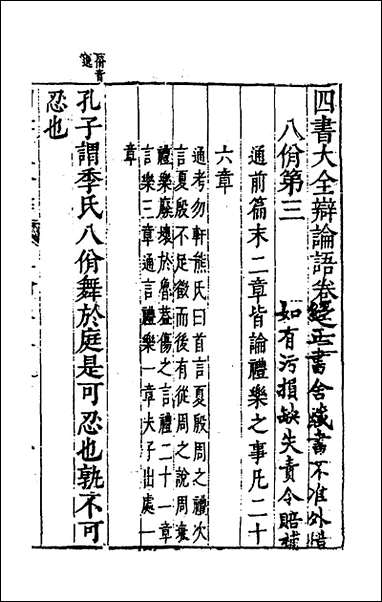 四書大全辯論語卷之三
經正書舍藏書不准外借
如有污損缺失責令賠補
八佾第三
通前篇末二章皆論禮樂之事凡二十
六章
通考勿軒熊氏曰首言夏殷周之禮次
言夏殷不足徵而後有從周之說周衰
禮樂廢壞於魯蓋傷之言禮二十一章
言樂三章通言禮樂一章夫子出處一
章
佾音逸
孔子謂季氏八佾舞於庭是可忍也孰不可
忍也